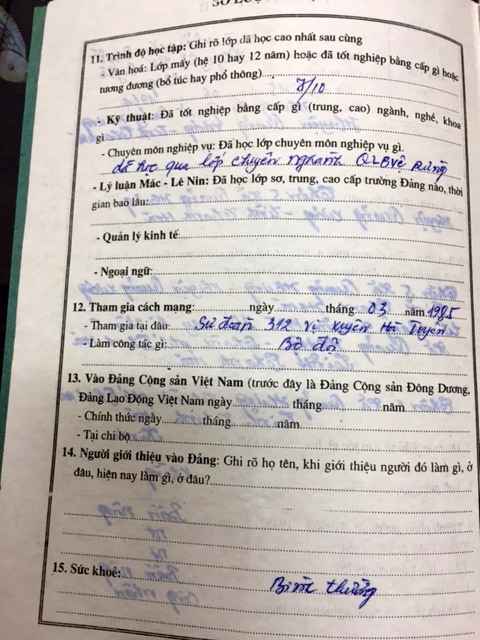 11. Trình độ học tập: Ghi rõ lớp đã học cao nhất sau cùng
- Văn hoá: Lớp mấy (hệ 10 hay 12 năm) hoặc đã tốt nghiệp bằng cấp gì hoặc
tương đương (bổ túc hay phổ thông)
7/10
- Kỹ thuật: Đã tốt nghiệp bằng cấp gì (trung, cao) ngành, nghề, khoa
gì
- Chuyên môn nghiệp vụ: Đã học lớp chuyên môn nghiệp vụ gì.
đã học qua lớp chuyên nghành QLBVệ Rừng
- Lý luận Mác - Lê Nin: Đã học lớp sơ, trung, cao cấp trường Đảng nào, thời
gian bao lâu:
- Quản lý kinh tế
- Ngoại ngữ:
12. Tham gia cách mạng: ngày tháng 03 năm 1985
- Tham gia tại đâu Sư đoàn 312 Vị Xuyên Hà Tuyên
- Làm công tác gì: Bộ đội
13. Vào Đảng Cộng sản Việt Nam (trước đây là Đảng Cộng sản Đông Dương,
Đảng Lao Động Việt Nam ngày tháng năm
- Chính thức ngày tháng năm
- Tại chi bộ
14. Người giới thiệu vào Đảng: Ghi rõ họ tên, khi giới thiệu người đó làm gì, ở
đâu, hiện nay làm gì, ở đâu?
15. Sức khoẻ:
Bình thường